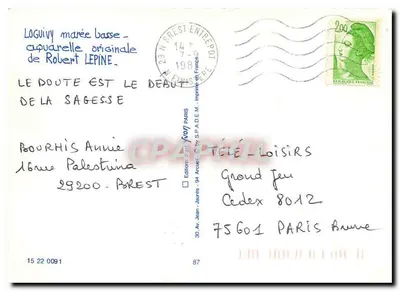 LOGUIVY marée basse -
aquarelle originale
de Robert LEPINE.
LE DOUTE EST LE DEBUT
DE LA SAGESSE
BOURHIS Annie
16 rue Palestrina
29200 - BREST
29 N BREST ENTREPOT
14
7 -
FINISTERE
2,00
TÉLÉ - LOISIRS
Grand Jeu
Cedex 8012
75601 PARIS Brune
Editions yvon PARIS
20, Av. Jean-Jaurès - 94 Arcueil
S.P.A.D.E.M. - Imprimé en France
CARTORUM
15 22 0091
87